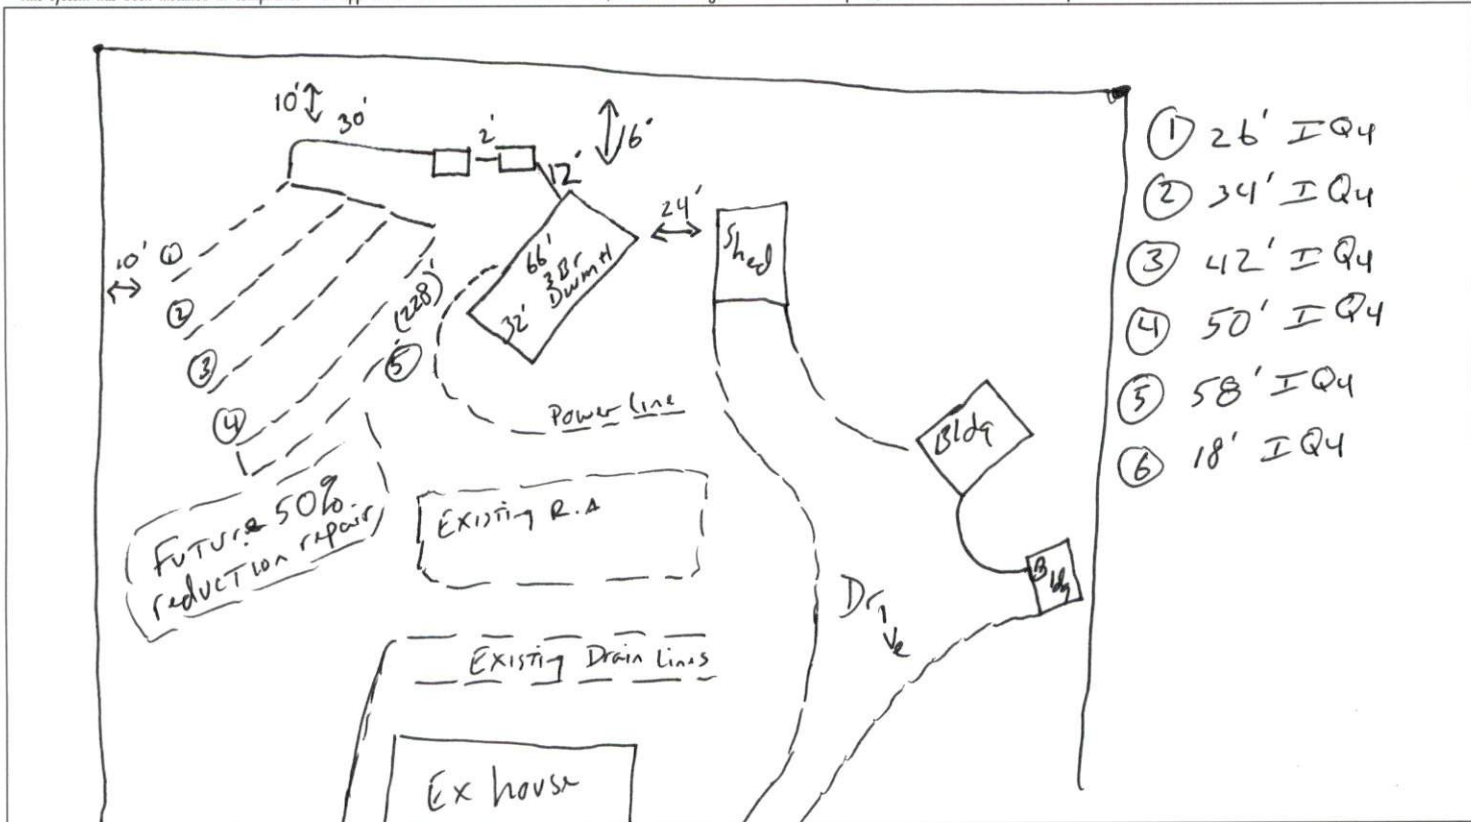 10'
30'
2'
16'
12'
24'
10' ①
②
③
④
⑤
(228')
66'
3Br
DWMH
32'
Shed
Power Line
Bldg
Bldg
Existing R.A
Future 50%
reduction repair
Drive
Existing Drain Lines
Ex house
① 26' IQ4
② 34' IQ4
③ 42' IQ4
④ 50' IQ4
⑤ 58' IQ4
⑥ 18' IQ4